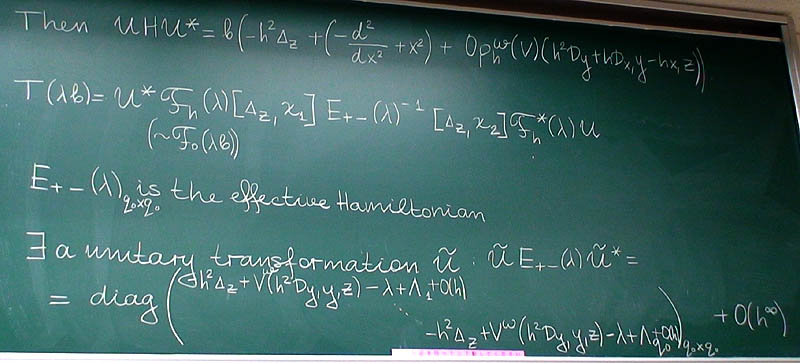 Then UHU* = b(-h²Δz + (-d²/dx² + x²) + Opₕʷ(V)(h²Dy+hDx, y-hx, z))
T(λb) = U* 𝓕ₕ(λ)[Δz, χ₁] E₊₋(λ)⁻¹ [Δz, χ₂] 𝓕ₕ*(λ) U
(~𝓕₀(λb))
E₊₋(λ)q₀×q₀ is the effective Hamiltonian
∃ a unitary transformation Ũ : Ũ E₊₋(λ) Ũ* =
= diag( -h²Δz + Vʷ(h²Dy, y, z) - λ + Λ₁ + O(h)
⋱
-h²Δz + Vʷ(h²Dy, y, z) - λ + Λq₀ + O(h) )q₀×q₀ + O(h^∞)